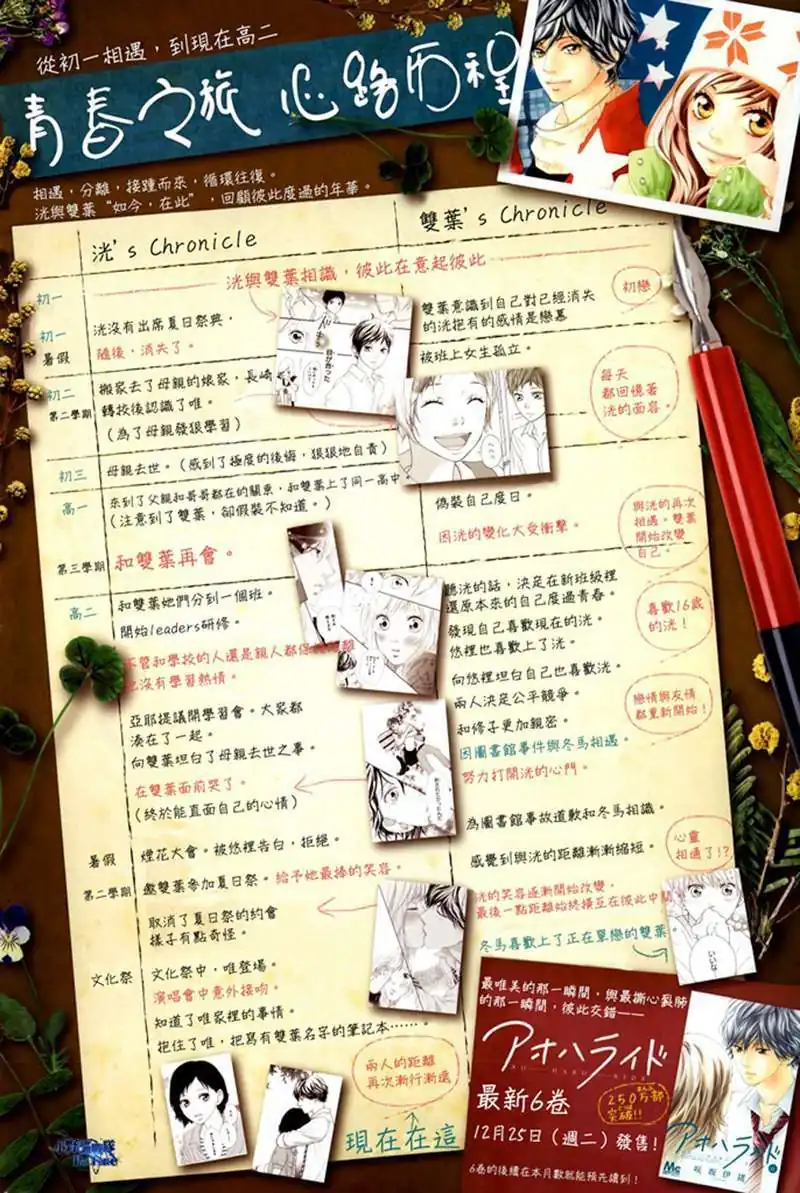 從初一相遇，到現在高二
青春之旅 心路历程
相遇，分離，接踵而來，循環往復。
洸與雙葉“如今，在此”，回顧彼此度過的年華。
洸's Chronicle
雙葉's Chronicle
洸與雙葉相識，彼此在意起彼此
初一
初一
暑假
洸沒有出席夏日祭典，
隨後，消失了。
雙葉意識到自己對已經消失
的洸抱有的感情是戀慕
初戀
被班上女生孤立。
初二
第二學期
搬家去了母親的娘家，長崎
轉校後認識了唯。
(為了母親發狠學習)
每天
都回憶著
洸的面容。
初三
母親去世。(感到了極度的後悔，狠狠地自責)
高一
來到了父親和哥哥都在的關東，和雙葉上了同一高中
(注意到了雙葉，卻假裝不知道。)
偽裝自己度日。
因洸的變化大受衝擊。
與洸的再次
相遇。雙葉
開始改變
自己。
第三學期
和雙葉再會。
高二
和雙葉她們分到一個班。
開始leaders研修。
不管和學校的人還是親人都保持距離
也沒有學習熱情。
聽洸的話，決定在新班級裡
還原本來的自己度過青春。
發現自己喜歡現在的洸。
悠裡也喜歡上了洸。
喜歡16歲
的洸！
向悠裡坦白自己也喜歡洸。
兩人決定公平競爭。
和修子更加親密。
戀情與友情
都重新開始！
因圖書館事件與冬馬相遇。
努力打開洸的心門。
亞耶提議開學習會。大家都
湊在了一起。
向雙葉坦白了母親去世之事。
在雙葉面前哭了。
(終於能直面自己的心情)
為圖書館事故道歉和冬馬相識。
暑假
煙花大會。被悠裡告白，拒絕。
感覺到與洸的距離漸漸縮短。
心靈
相通了!?
第二學期
邀雙葉參加夏日祭。給予她最捧的笑容。
取消了夏日祭的約會
樣子有點奇怪。
洸的笑容逐漸開始改變。
最後一點距離始終橫亙在彼此中間
冬馬喜歡上了正在單戀的雙葉。
文化祭
文化祭中，唯登場。
演唱會中意外接吻。
知道了唯家裡的事情。
抱住了唯，把寫有雙葉名字的筆記本……。
兩人的距離
再次漸行漸遠
現在在這
最唯美的那一瞬間，與最撕心裂肺
的那一瞬間，彼此交錯——
アオハライド
最新6卷
250万部
突破!!
12月25日（週二）發售！
6卷的後續在本月數就能預先讀到！
アオハライド
咲坂伊緒